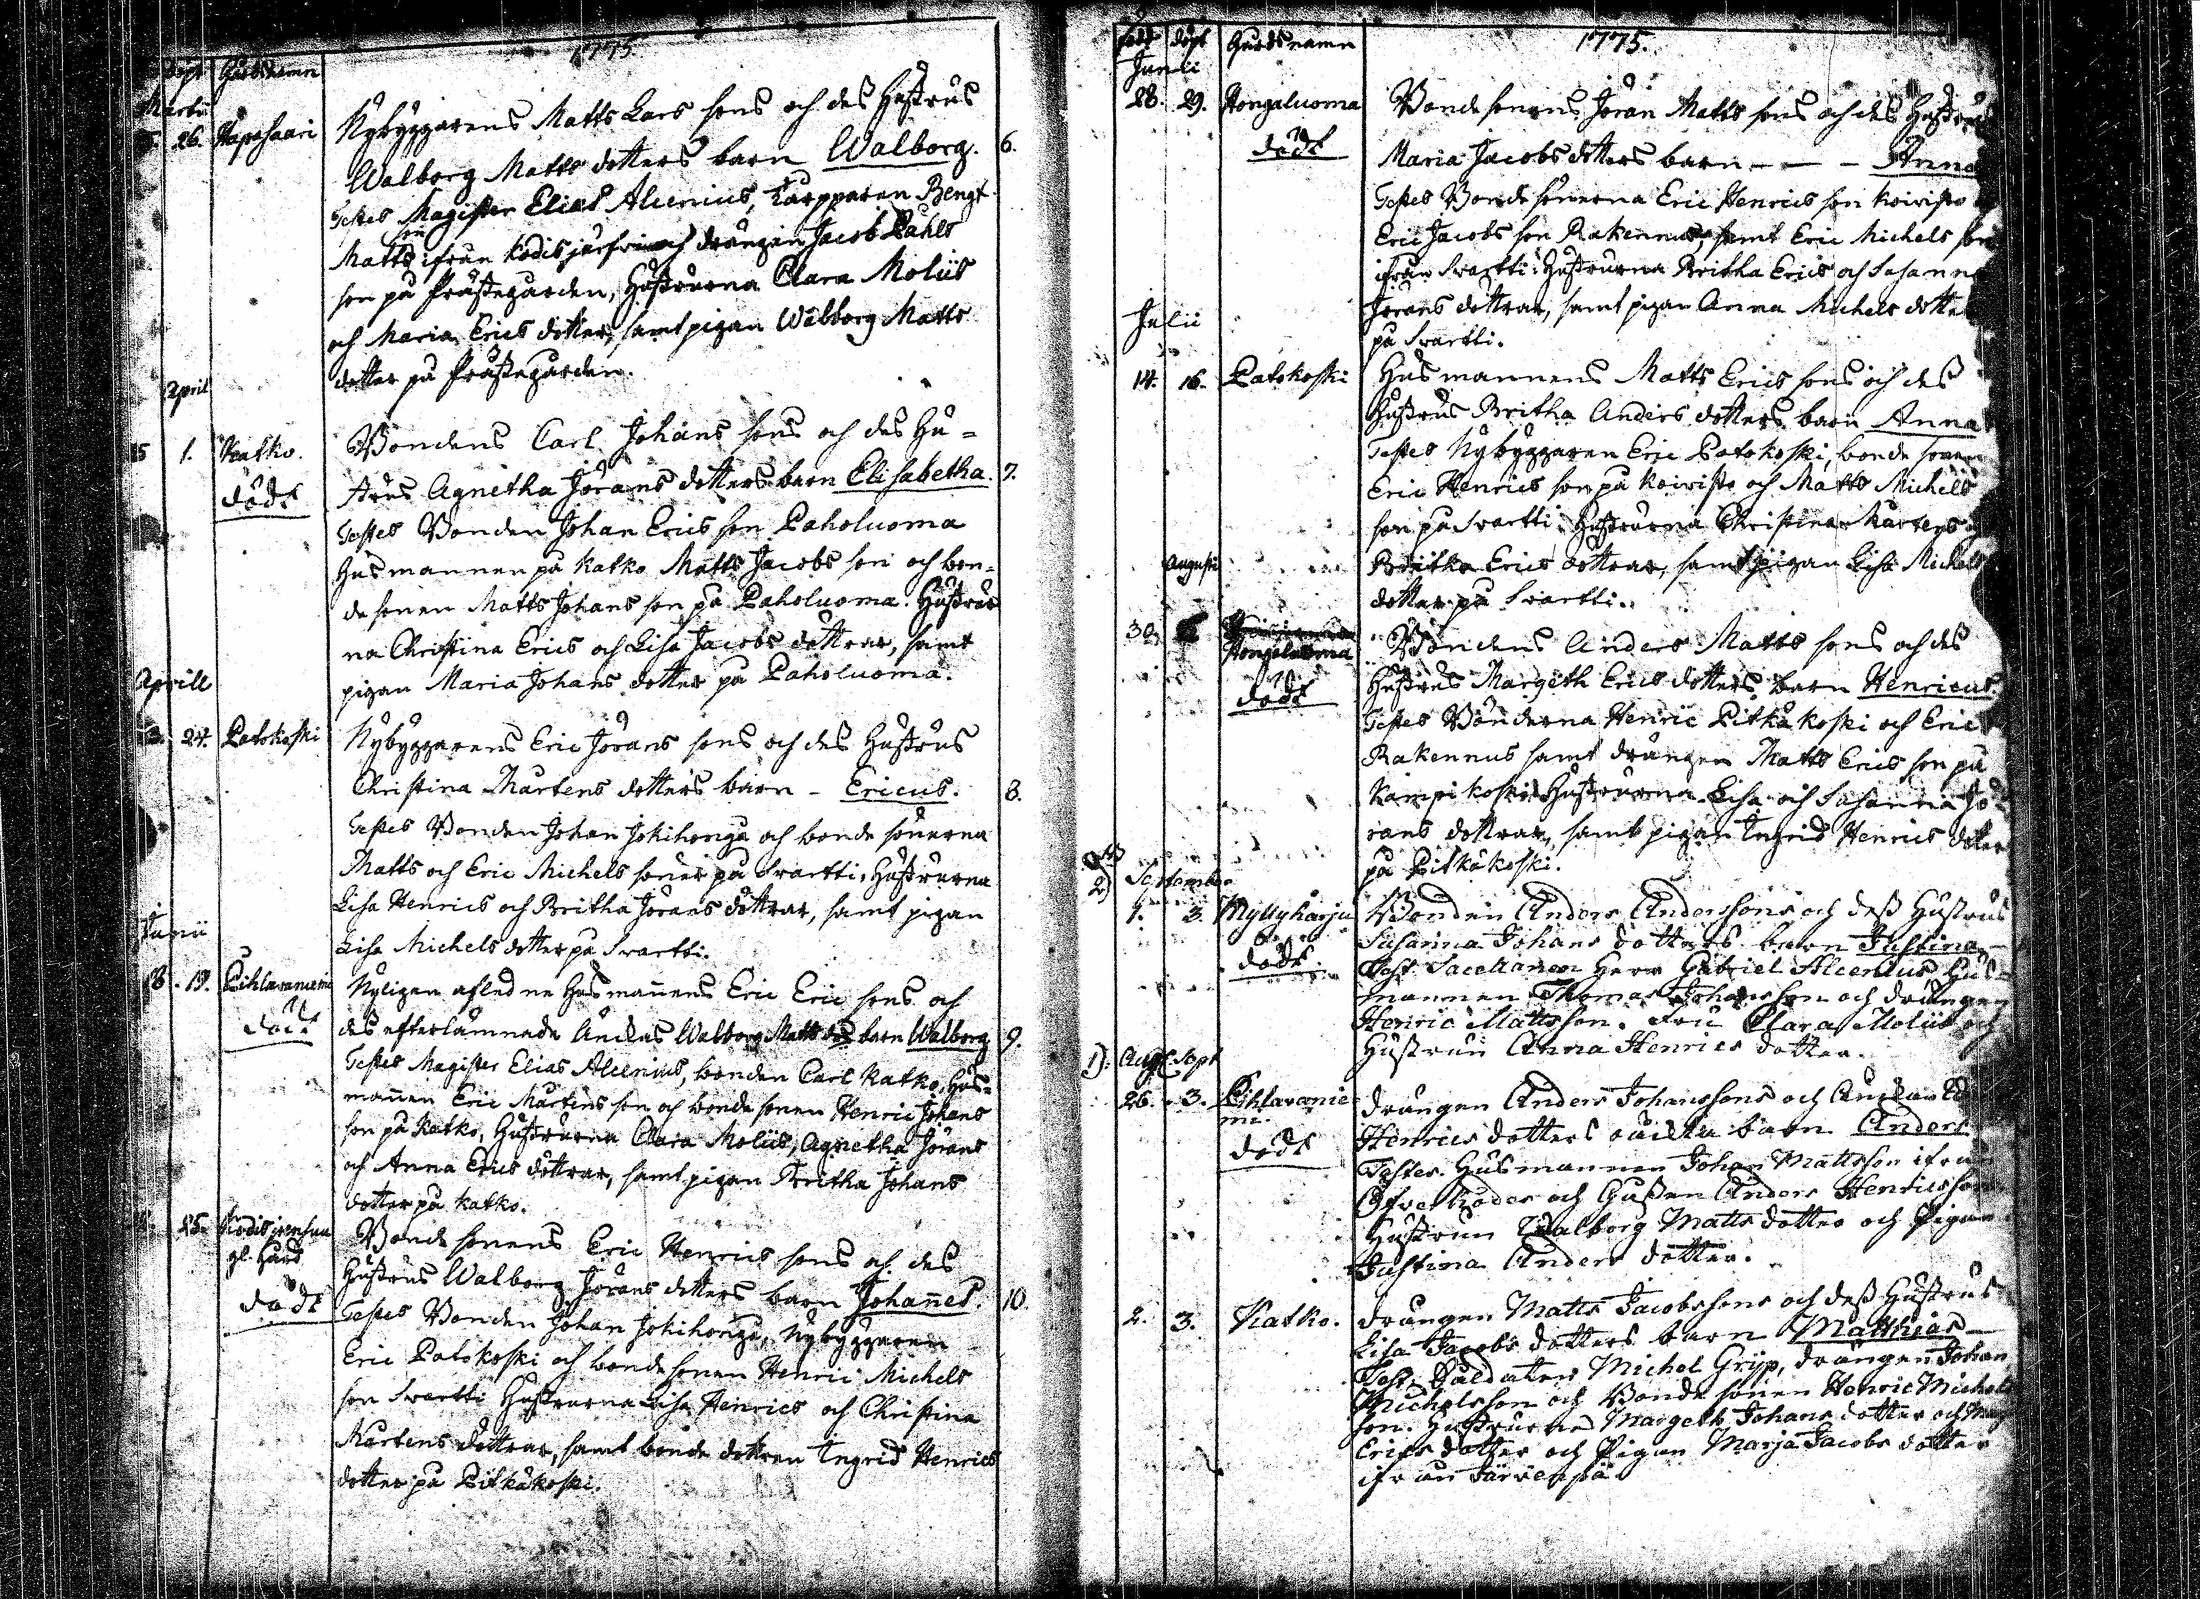 1775.
döpt Gårdsnamn
Martii
26. Hapasaari
Nybyggarens Matts Lars sons och des Hustrus
Walborg Matts dotters barn Walborg. 6.
Testes Magister Elias Alcenius, Karpparen Bengt
Matts son ifrån Kodisjärfvi och drängen Jacob Påhls
son på Prästegården, Hustrurna Clara Moliis
och Maria Erics dotter, samt pigan Walborg Matts
dotter på Prästegården.
April
25 1. Katko.
dödt
Bondens Carl Johans sons och des Hu-
strus Agnetha Jörans dotters barn Elisabetha. 7.
Testes Bonden Johan Erics son Paholuoma
Husmannen på Katko Matts Jacobs son och bon-
de sonen Matts Johans son på Paholuoma. Hustrur
na Christina Erics och Lisa Jacobs döttrar, samt
pigan Maria Johans dotter på Paholuoma.
Aprill
3. 24. Patokoski
Nybyggarens Eric Jörans sons och des Hustrus
Christina Martens dotters barn - Ericus. 8.
Testes Bonden Johan Jokihonga och bonde sönerna
Matts och Eric Michels söner på Svartti, Hustrurna
Lisa Henrics och Britha Jörans döttrar, samt pigan
Lisa Michels dotter på Svartti.
Junii
18. 19. Pihlavaniemi
dödt
Nyligen afledne Husmannens Eric Eric sons och
des efterlämnade Änckas Walborg Matts dotters barn Walborg 9.
Testes Magister Elias Alcenius, bonden Carl Katko, Hus-
mannen Eric Mårtens son och bonde sonen Henric Johans
son på Katko, Hustrurna Clara Moliis, Agnetha Jörans
och Anna Erics döttrar, samt pigan Britha Johans
dotter på Katko.
25. Kodisjoensuu
gl. Gård
dödt
Bonde sonens Eric Henrics sons och des
Hustrus Walborg Jörans dotters barn Johannes. 10.
Testes Bonden Johan Jokihonga, Nybyggaren
Eric Patokoski och bonde sonen Henric Michels
son Svartti Hustrurna Lisa Henrics och Christina
Mårtens döttrar, samt bonde dottren Ingrid Henrics
dotter på Pitkäkoski.
1775.
född döpt Gårdsnamn
Junii
28. 29. Hongaluoma
dödt
Bonde sonens Jöran Matts sons och des Hustrus
Maria Jacobs dotters barn - - - Anna
Testes Bonde sönerna Eric Henrics son Koivisto
Eric Jacobs son Rakennus, samt Eric Michels son
ifrån Svartti: Hustrurna Britha Erics och Susanna
Jörans döttrar, samt pigan Anna Michels dotter
på Svartti.
Julii
14. 16. Patokoski
Husmannens Matts Erics sons och des
Hustrus Britha Anders dotters barn Anna
Testes Nybyggaren Eric Patokoski, bonde sonen
Eric Henrics son på Koivisto och Matts Michels
son på Svartti. Hustrurna Christina Mårtens
Britha Erics döttrar, samt pigan Lisa Michels
dotter på Svartti.
Augusti
30. Hongaluoma
dödt
Bondens Anders Matts sons och des
Hustrus Margeth Erics dotters barn Henricus.
Testes Bönderna Henric Pitkäkoski och Eric
Rakennus samt drängen Matts Erics son på
Kämpikoski Hustrurna Lisa och Susanna Jö-
rans döttrar, samt pigan Ingrid Henrics dotter
på Pitkäkoski.
2) September
1. 3. Myllyharju
dödt.
Bonden Anders Anderssons och dess Hustrus
Susanna Johans dotters barn Justina
Test. Sacellanen Herr Gabriel Alcenius Hus-
mannen Thomas Johansson och drängen
Henric Mattsson. Fru Clara Moliis och
Hustrun Anna Henrics dotter.
1): Aug. Sept
26. 3. Pihlavanie
mi.
dödt
Drängen Anders Johanssons och
Henrics dotters barn Anders
Testes Husmannen Johan Mattsson ifrån
och Anders Henricsson
Hustrun Walborg Matts dotter och Pigan
Justina Anders dotter.
2. 3. Katko.
Drängen Matts Jacobssons och dess Hustrus
Lisa Jacobs dotters barn Matthias
Test. Soldaten Michel Gryp, drängen Johan
Michelsson och Bonde sonen Henric Michels
son. Hustrurna Margeth Johans dotter och
Erics dotter och Pigan Marja Jacobs dotter
ifrån Järvenpä